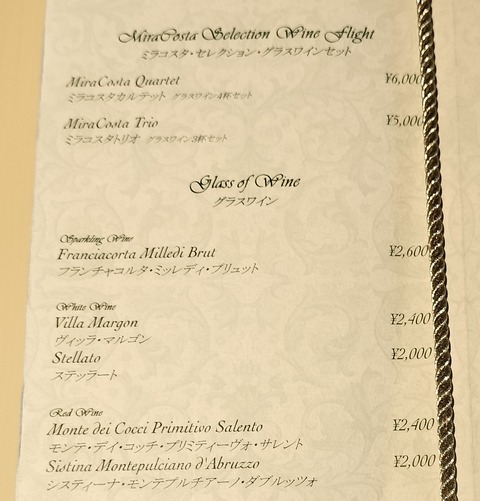 MiraCosta Selection Wine Flight
ミラコスタ・セレクション・グラスワインセット
MiraCosta Quartet ¥6,000
ミラコスタカルテット グラスワイン4杯セット
MiraCosta Trio ¥5,000
ミラコスタトリオ グラスワイン3杯セット
Glass of Wine
グラスワイン
Sparkling Wine
Franciacorta Milledi Brut ¥2,600
フランチャコルタ・ミッレディ・ブリュット
White Wine
Villa Margon ¥2,400
ヴィッラ・マルゴン
Stellato ¥2,000
ステッラート
Red Wine
Monte dei Cocci Primitivo Salento ¥2,400
モンテ・デイ・コッチ・プリミティーヴォ・サレント
Sistina Montepulciano d'Abruzzo ¥2,000
システィーナ・モンテプルチアーノ・ダブルッツォ